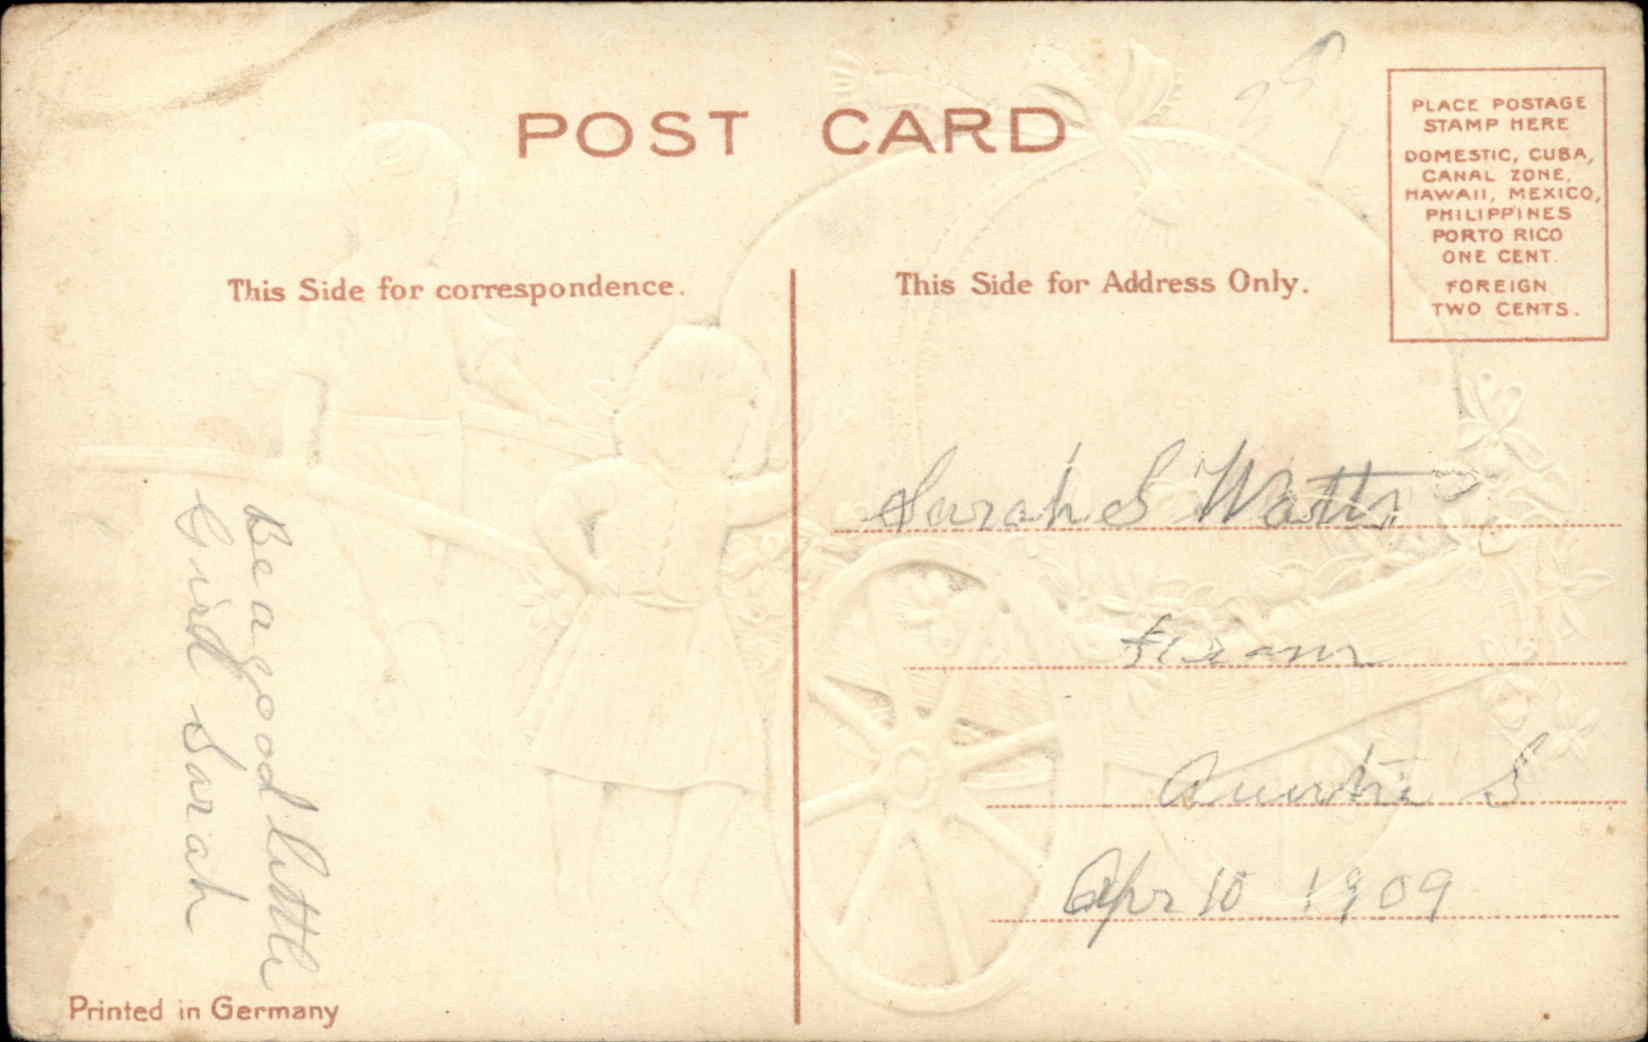 POST CARD
PLACE POSTAGE
STAMP HERE
DOMESTIC, CUBA,
CANAL ZONE,
HAWAII, MEXICO,
PHILIPPINES
PORTO RICO
ONE CENT.
FOREIGN
TWO CENTS.
This Side for correspondence.
This Side for Address Only.
Be a good little
Girl Sarah
Sarah S Watts
from
Auntie S
Apr 10 1909
Printed in Germany